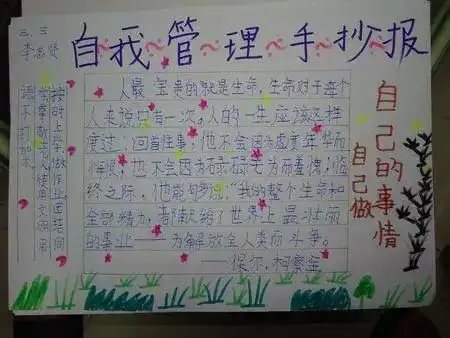 三、三
李思贤
自我管理手抄报
按时上学做作业团结同
学孝敬老人使用文明用
语不打架
人最宝贵的就是生命，生命对于每个
人来说只有一次。人的一生应该这样
度过，回首往事，他不会因为虚度年华而
悔恨，也不会因为碌碌无为而羞愧；临
终之际，他能够说：“我的整个生命和
全部精力，都献给了世界上最壮丽
的事业——为解放全人类而斗争。
——保尔.柯察金
自己的事情
自己做